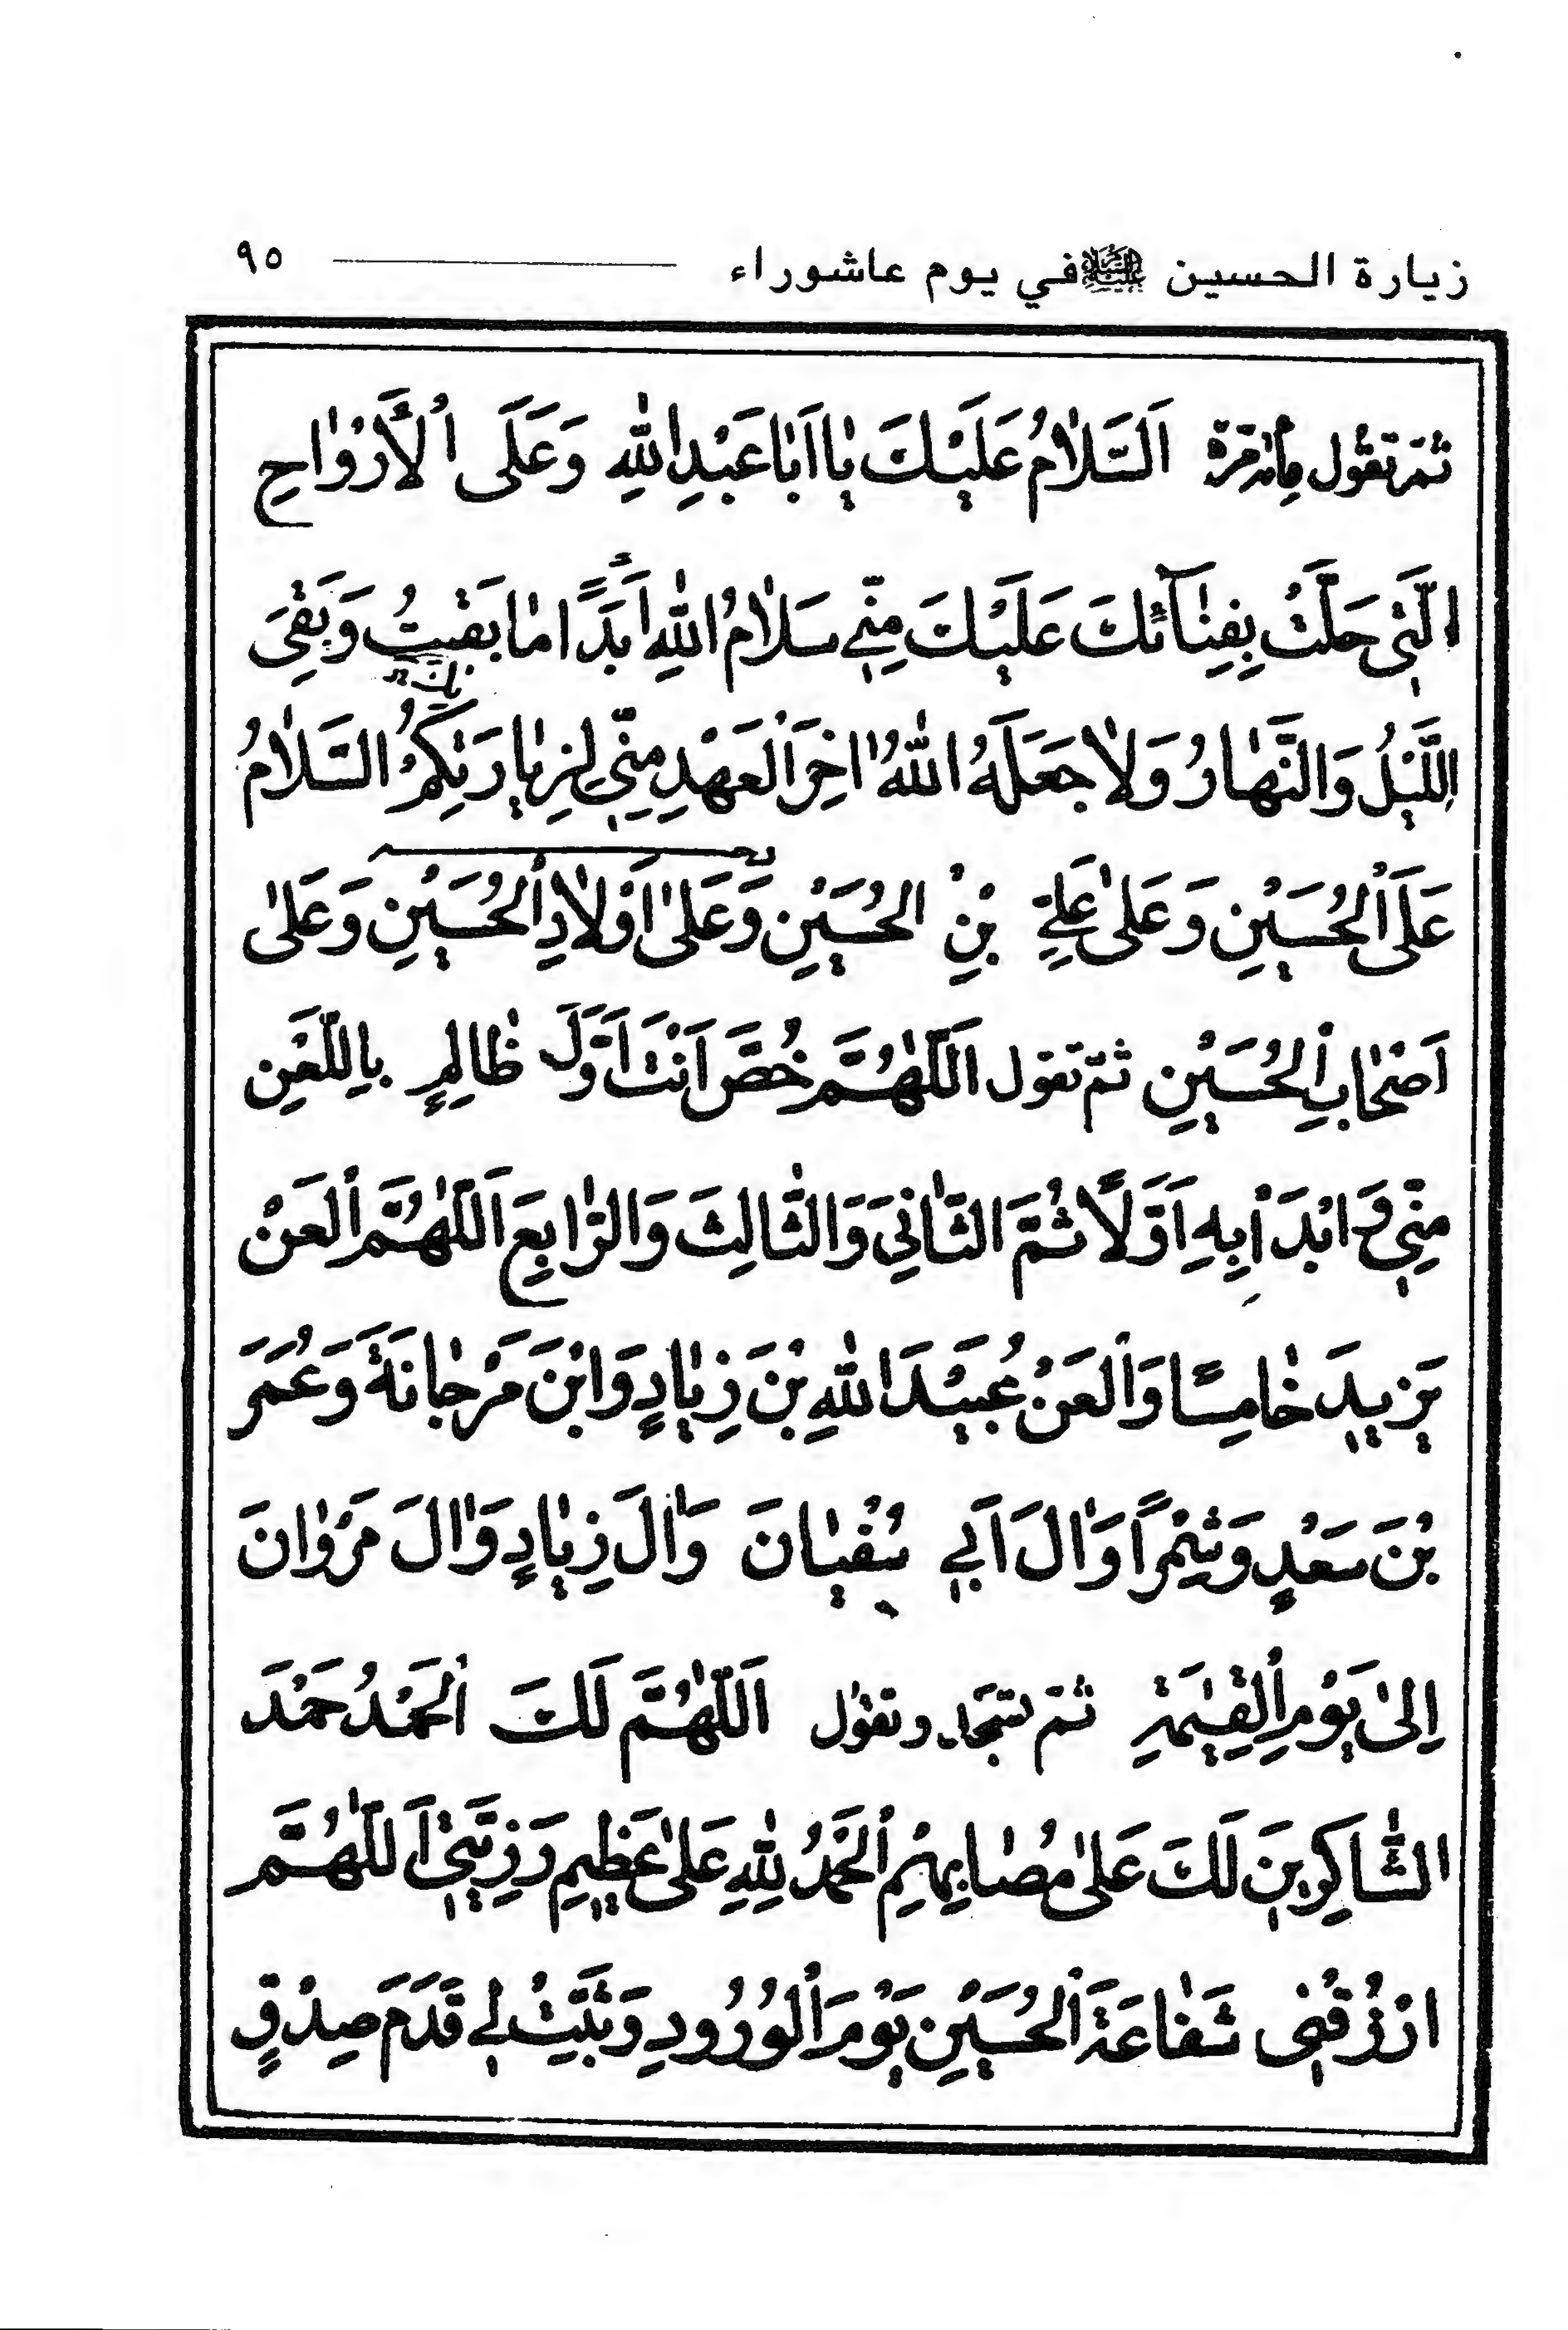 زيارة الحسين عليه السلام في يوم عاشوراء ٩٥
ثم تقول مائة مرة اَلسَّلامُ عَلَيْكَ يا اَبا عَبْدِ اللهِ وَعَلَى الْأَرْواحِ
الَّتي حَلَّتْ بِفِنآئِكَ عَلَيْكَ مِنّي سَلامُ اللهِ اَبَدًا ما بَقيتُ وَبَقِيَ
اللَّيْلُ وَالنَّهارُ وَلا جَعَلَهُ اللهُ اخِرَ الْعَهْدِ مِنّي لِزِيارَتِكُمْ السَّلامُ
عَلَى الْحُسَيْنِ وَعَلى عَلِيِّ بْنِ الْحُسَيْنِ وَعَلى اَوْلادِ الْحُسَيْنِ وَعَلى
اَصْحابِ الْحُسَيْنِ ثمّ تقول اَللّهُمَّ خُصَّ اَنْتَ اَوَّلَ ظالِمٍ بِاللَّعْنِ
مِنّي وَابْدَأْ بِهِ اَوَّلًا ثُمَّ الثّانِيَ وَالثّالِثَ وَالرّابِعَ اَللّهُمَّ الْعَنْ
يَزيدَ خامِسًا وَالْعَنْ عُبَيْدَ اللهِ بْنَ زِيادٍ وَابْنَ مَرْجانَةَ وَعُمَرَ
بْنَ سَعْدٍ وَشِمْرًا وَالَ اَبي سُفْيانَ وَالَ زِيادٍ وَالَ مَرْوانَ
اِلى يَوْمِ الْقِيمَةِ ثم تسجد وتقول اَللّهُمَّ لَكَ الْحَمْدُ حَمْدَ
الشّاكِرينَ لَكَ عَلى مُصابِهِمْ الْحَمْدُ لِلهِ عَلى عَظيمِ رَزِيَّتي اَللّهُمَّ
ارْزُقْني شَفاعَةَ الْحُسَيْنِ يَوْمَ الْوُرُودِ وَثَبِّتْ لي قَدَمَ صِدْقٍ